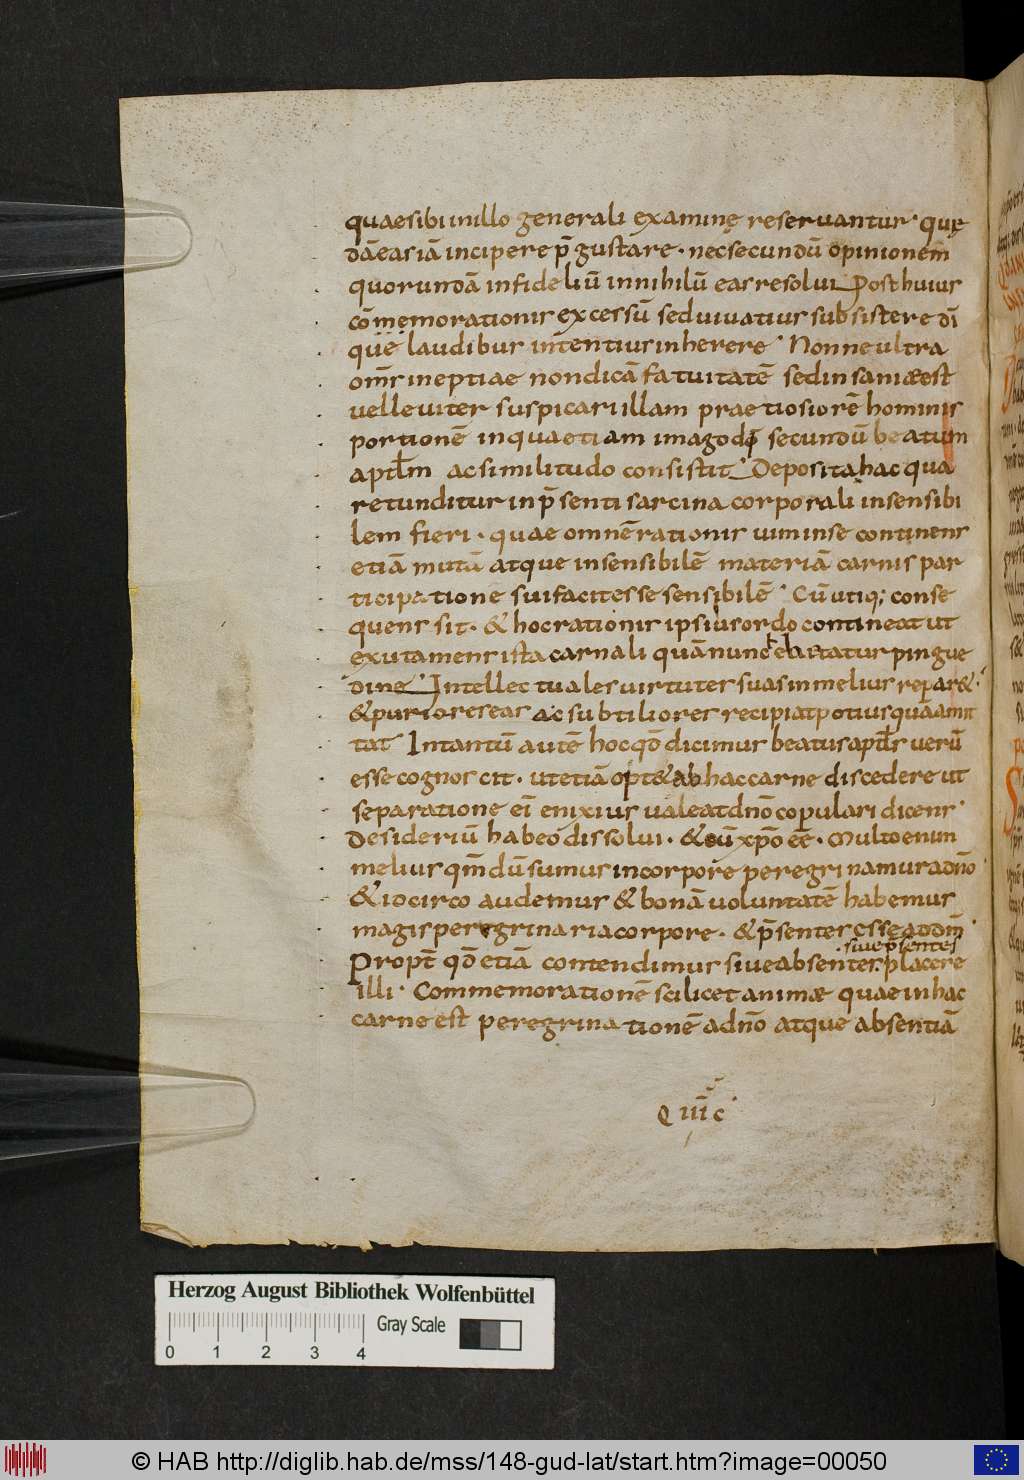 quaesibi inillo generali examinę reservantur· quę
dāeas iā incipere p̄gustare· nec secundū opinionem̄
quorundā infideliū innihilū eas resolui Post huius
cōmemorationis excessū sed uiuatius subsistere d̄i
que laudibus intentius inherere· Nonne ultra
om̄s ineptiae non dicā fatuitatē sed insaniæ est
uelleuiter suspicari illam praetiosiorē hominis
portionē in qua etiam imago dī secundū beatum
aptłm ac similitudo consistit· Deposita hac qua
retunditur in p̄senti sarcina corporali insensibi
lem fieri· quae omnē rationis uim in se continens
etiā mutā atque insensibilē materiā carnis par
ticipatione sui facit esse sensibilē· Cū utiq; conse
quens sit· & hoc rationis ipsius ordo contineat ut
exuta mens ista carnali quā nunc ebitatur pingue
dine· Intellectuales uirtutes suas in melius repar&·
& puriores eas ac subtiliores recipiat potius quā amit
tat Intantū autē hoc qđ dicimus beatus aptłs uerū
esse cognoscit· ut etiā opt& ab hac carne discedere ut
separatione ei enixius ualeat dnō copulari dicens·
Desideriū habeo dissolui· & cū xpō eē· Multo enim
melius qm̄ dū sumus in corpore peregrinamur a dnō·
& idcirco audemus & bonā uoluntatē habemus
magis peregrinari a corpore· & p̄sentes esse ad dm̄·
siue p̄sentes
Propt̄ qđ etiā contendimus siue absentes· placere
illi· Commemorationē scilicet animæ quae in hac
carne est peregrinationē a dnō atque absentiā
Q IIII C
Herzog August Bibliothek Wolfenbüttel
Gray Scale
0 1 2 3 4
© HAB http://diglib.hab.de/mss/148-gud-lat/start.htm?image=00050